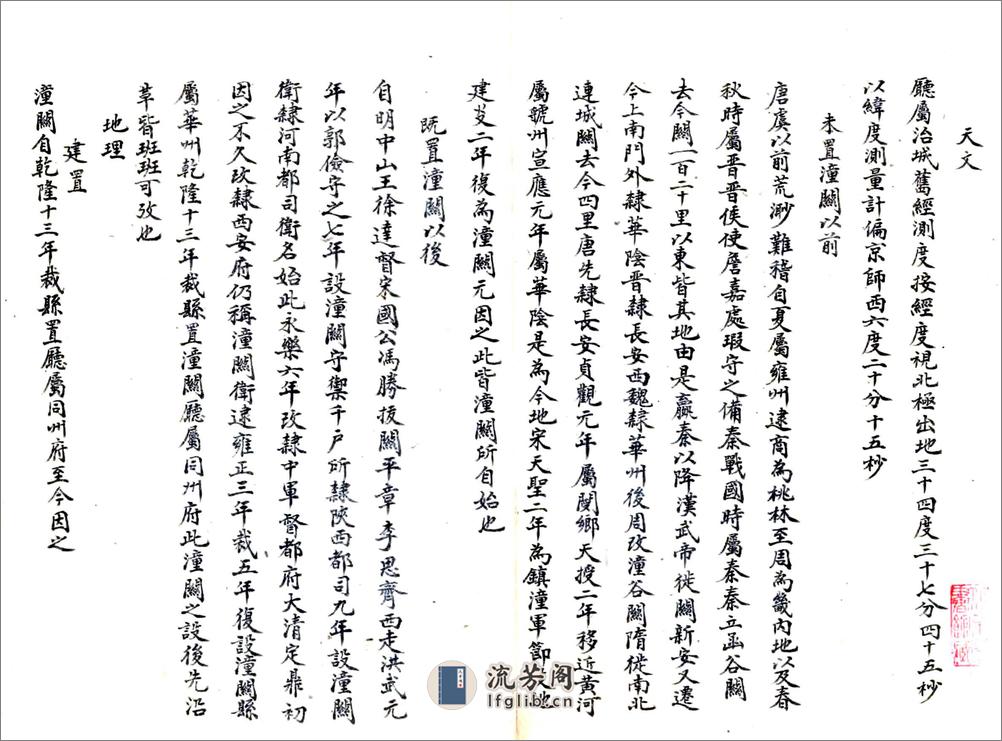 天文
廳屬治城舊經測度按經度視北極出地三十四度三十七分四十五秒
以緯度測量計偏京師西六度二十分十五秒
未置潼關以前
唐虞以前荒渺難稽自夏屬雍州逮商為桃林至周為畿内地以及春
秋時屬晉晉侯使詹嘉處瑕守之備秦戰國時屬秦秦立函谷關
去今關一百二十里以東皆其地由是嬴秦以降漢武帝徙關新安又遷
今上南門外隸華陰晉隸長安西魏隸華州後周改潼谷關隋徙南北
連城關去今四里唐先隸長安貞觀元年屬閿鄉天授二年移近黃河
屬虢州宣應元年屬華陰是為今地宋天聖二年為鎮潼軍節地
建炎二年復為潼關元因之此皆潼關所自始也
既置潼關以後
自明中山王徐達督宋國公馮勝拔關平章李思齊西走洪武元
年以郭儉守之七年設潼關守禦千戶所隸陝西都司九年設潼關
衛隸河南都司衛名始此永樂六年改隸中軍督都府大清定鼎初
因之不久改隸西安府仍稱潼關衛逮雍正三年裁五年復設潼關縣
屬華州乾隆十三年裁縣置潼關廳屬同州府此潼關之設後先沿
革皆班班可攷也
地理
建置
潼關自乾隆十三年裁縣置廳屬同州府至今因之
流芳阁
lfglib.cn